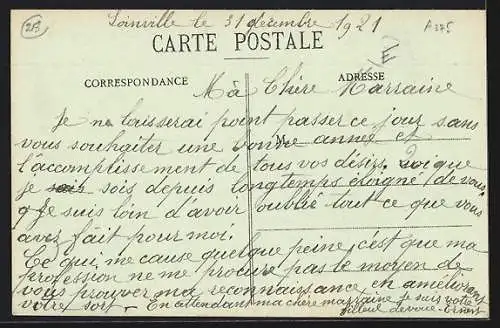 213
Loinville le 31 décembre 1921
A 375
CARTE POSTALE
E
CORRESPONDANCE
ADRESSE
Mâ Chère Marraine
Je ne laisserai point passer ce jour sans
vous souhaiter une bonne année et
M
l'accomplissement de tous vos désirs. Quoique
je suis sois depuis longtemps éloigné de vous
Je suis loin d'avoir oublié tout ce que vous
avez fait pour moi.
Ce qui, me cause quelque peine, c'est que ma
profession ne me procure pas le moyen de
vous prouver ma reconnaissance, en améliorant
votre sort. En attendant ma chère marraine je suis votre
filleul dévoué. Ernest